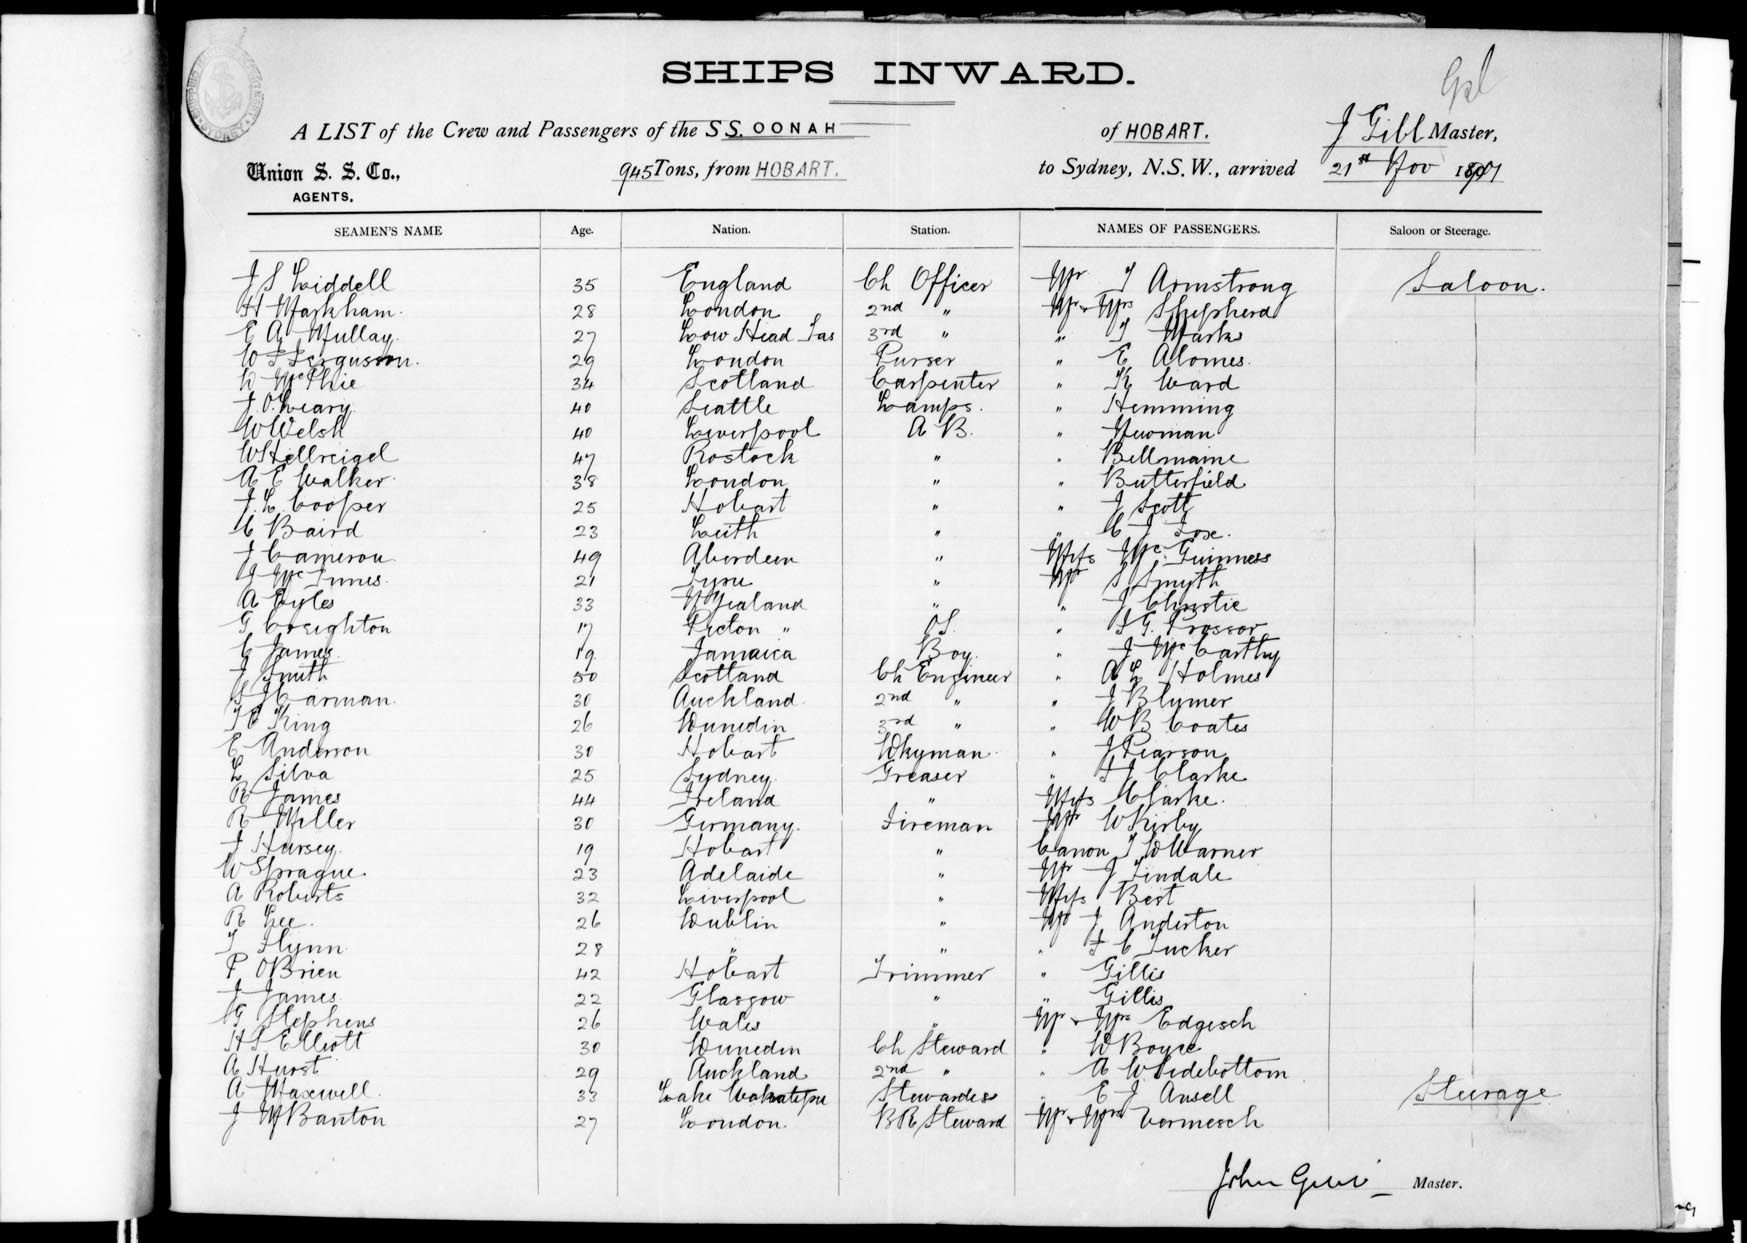 SHIPS INWARD.
A LIST of the Crew and Passengers of the S S. OONAH of HOBART. J Gibb Master,
Union S. S. Co., 945 Tons, from HOBART. to Sydney, N.S.W., arrived 21st Nov
AGENTS.
SEAMEN'S NAME Age. Nation. Station. NAMES OF PASSENGERS. Saloon or Steerage.
J S Liddell 35 England Ch Officer Mr T Armstrong Saloon.
H Markham. 28 London 2nd " Mr & Mrs Shepherd
E A Mullay. 27 Low Head Tas 3rd " " T Marks
W F Ferguson. 29 London Purser " E Alomes.
D McPhie 34 Scotland Carpenter " K Ward
J. O.Leary. 40 Seattle Lamps. " Hemming
W Welsh 40 Liverpool A B. " Newman
W Hellreigel 47 Rostock " " Bellmaine
A E Walker. 38 London " " Butterfield
J. L. Cooper 25 Hobart " " J Scott
C Baird 23 Leith " " C J Fox.
J Cameron 49 Aberdeen " Miss McGuinness
J McInnes. 21 Tyne " Mr S. Smyth
A Eyles 33 N Zealand " " J Christie
G Creighton 17 Picton " OS. " F G. Prossor
C James. 19 Jamaica Boy. " J McCarthy
J Smith 50 Scotland Ch Engineer " A L Holmes
S J Carman. 30 Auckland. 2nd " " J Blymer
T C King 26 Dunedin 3rd " " W B Coates
E Anderson 30 Hobart Dkyman. " J Pearson
L Silva 25 Sydney. Greaser " F J Clarke
R James 44 Ireland " Miss Clarke.
R Miller 30 Germany. Fireman Mr W Kirby
J Hursey. 19 Hobart " Canon T W Warner
W Sprague. 23 Adelaide " Mr J Tindale
A Roberts 32 Liverpool " Miss Best
R Lee. 26 Dublin " Mr J Anderton
T Flynn 28 " " " F C Tucker
P OBrien 42 Hobart Trimmer " Gillis
J James. 22 Glasgow " " Gillis
G Stephens 26 Wales " Mr & Mrs Edgesch
H S Elliott 30 Dunedin Ch Steward " W Boyce
A Hurst 29 Auckland 2nd " " A W Sidebottom
A Maxwell. 33 Lake Wakatipu Stewardess " E J Ansell Steerage
J M Banton 27 London. B R Steward Mr & Mrs Vermesch
Master.